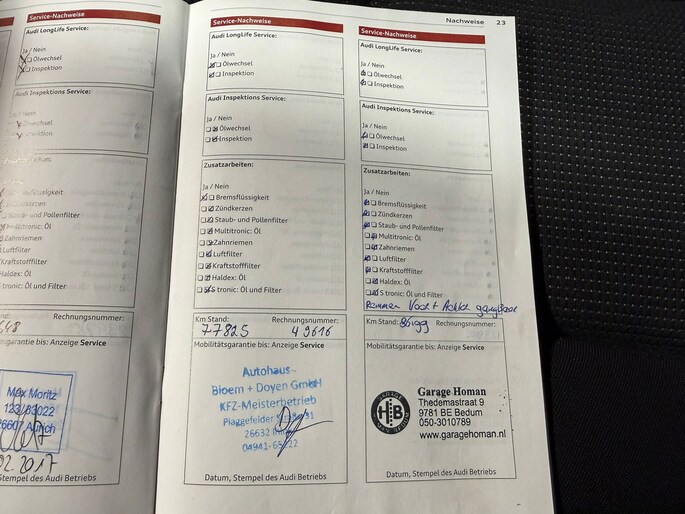 Service-Nachweise
Audi LongLife Service:
Ja / Nein
Ölwechsel
Inspektion
Audi Inspektions Service:
Zahnriemen
Luftfilter
Kraftstofffilter
Haldex: Öl
S tronic: Öl und Filter
Max Moritz
123/63022
26607 Aurich
Service-Nachweise
Audi LongLife Service:
Ja / Nein
Ölwechsel
Inspektion
Audi Inspektions Service:
Ja / Nein
Ölwechsel
Inspektion
Zusatzarbeiten:
Ja / Nein
Bremsflüssigkeit
Zündkerzen
Staub- und Pollenfilter
Multitronic: Öl
Zahnriemen
Luftfilter
Kraftstofffilter
Haldex: Öl
S tronic: Öl und Filter
Km Stand: Rechnungsnummer:
77825 49616
Mobilitätsgarantie bis: Anzeige Service
Autohaus
Bloem + Doyen GmbH
KFZ-Meisterbetrieb
Datum, Stempel des Audi Betriebs
Nachweise 23
Service-Nachweise
Audi LongLife Service:
Ja / Nein
Ölwechsel
Inspektion
Audi Inspektions Service:
Ja / Nein
Ölwechsel
Inspektion
Zusatzarbeiten:
Ja / Nein
Bremsflüssigkeit
Zündkerzen
Staub- und Pollenfilter
Multitronic: Öl
Zahnriemen
Luftfilter
Kraftstofffilter
Haldex: Öl
S tronic: Öl und Filter
Km Stand: Rechnungsnummer:
Mobilitätsgarantie bis: Anzeige Service
Garage Homan
Thedemastraat 9
9781 BE Bedum
050-3010789
www.garagehoman.nl
Datum, Stempel des Audi Betriebs